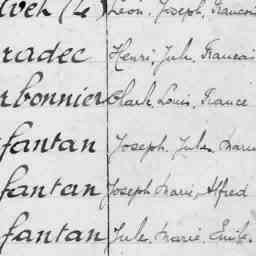 Léon, Joseph, Francois
radec Henri, Jule, Francois
rbonnier Louis, France
fantan Joseph, Jules, Marie
fantan Joseph Marie, Alfred
fantan Jule, Marie, Emile